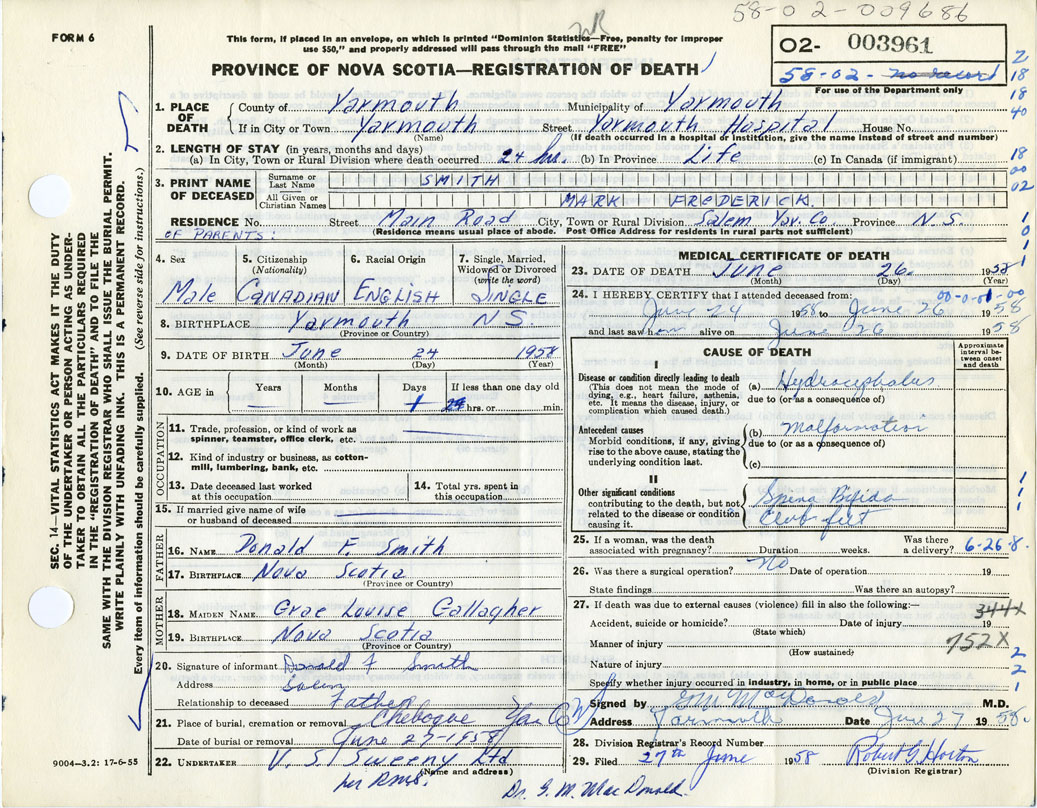 58-02-009686
FORM 6
This form, if placed in an envelope, on which is printed "Dominion Statistics—Free, penalty for improper
use $50," and properly addressed will pass through the mail "FREE"
PROVINCE OF NOVA SCOTIA—REGISTRATION OF DEATH
02- 003961
58-02- no record
For use of the Department only
SEC. 14—VITAL STATISTICS ACT MAKES IT THE DUTY
OF THE UNDERTAKER OR PERSON ACTING AS UNDER-
TAKER TO OBTAIN ALL THE PARTICULARS REQUIRED
IN THE "REGISTRATION OF DEATH" AND TO FILE THE
SAME WITH THE DIVISION REGISTRAR WHO SHALL ISSUE THE BURIAL PERMIT.
WRITE PLAINLY WITH UNFADING INK. THIS IS A PERMANENT RECORD.
Every item of information should be carefully supplied. (See reverse side for instructions.)
1. PLACE OF DEATH County of Yarmouth Municipality of Yarmouth
If in City or Town Yarmouth Street Yarmouth Hospital House No.
(Name) (If death occurred in a hospital or institution, give the name instead of street and number)
2. LENGTH OF STAY (in years, months and days)
(a) In City, Town or Rural Division where death occurred 24 hrs. (b) In Province Life (c) In Canada (if immigrant)
3. PRINT NAME OF DECEASED
Surname or Last Name SMITH
All Given or Christian Names MARK FREDERICK.
RESIDENCE No. Street Main Road City, Town or Rural Division Salem Yar. Co. Province N.S.
OF PARENTS: (Residence means usual place of abode. Post Office Address for residents in rural parts not sufficient)
4. Sex Male
5. Citizenship (Nationality) CANADIAN
6. Racial Origin ENGLISH
7. Single, Married, Widowed or Divorced (write the word) SINGLE
8. BIRTHPLACE Yarmouth NS
(Province or Country)
9. DATE OF BIRTH June 24 1958
(Month) (Day) (Year)
10. AGE in Years — Months — Days 1 If less than one day old 24 hrs. or min.
OCCUPATION
11. Trade, profession, or kind of work as
spinner, teamster, office clerk, etc.
12. Kind of industry or business, as cotton-
mill, lumbering, bank, etc.
13. Date deceased last worked
at this occupation
14. Total yrs. spent in
this occupation
15. If married give name of wife
or husband of deceased
FATHER
16. NAME Donald F. Smith
17. BIRTHPLACE Nova Scotia
(Province or Country)
MOTHER
18. MAIDEN NAME Grae Louise Gallagher
19. BIRTHPLACE Nova Scotia
(Province or Country)
20. Signature of informant Donald F Smith
Address Salem
Relationship to deceased Father
21. Place of burial, cremation or removal Chebogue Yar Co
Date of burial or removal June 27-1958
22. UNDERTAKER V. S. Sweeny Ltd
(Name and address)
9004—3.2: 17-6-55
MEDICAL CERTIFICATE OF DEATH
23. DATE OF DEATH June 26. 1958
(Month) (Day) (Year)
24. I HEREBY CERTIFY that I attended deceased from: 00-0-01-00
June 24 1958 to June 26 1958
and last saw him alive on June 26 1958
CAUSE OF DEATH
Approximate interval between onset and death
I
Disease or condition directly leading to death
(This does not mean the mode of
dying, e.g., heart failure, asthenia,
etc. It means the disease, injury, or
complication which caused death.)
(a) Hydrocephalus
due to (or as a consequence of)
Antecedent causes
Morbid conditions, if any, giving
rise to the above cause, stating the
underlying condition last.
(b) Malformation
due to (or as a consequence of)
(c)
II
Other significant conditions
contributing to the death, but not
related to the disease or condition
causing it.
Spina Bifida
Club feet
25. If a woman, was the death
associated with pregnancy? Duration weeks. Was there a delivery? 6-26-8.
26. Was there a surgical operation? No Date of operation 19
State findings Was there an autopsy?
27. If death was due to external causes (violence) fill in also the following:—
Accident, suicide or homicide? Date of injury 19
(State which) 344X
Manner of injury 752X
(How sustained)
Nature of injury
Specify whether injury occurred in industry, in home, or in public place
Signed by G M MacDonald M.D.
Address Yarmouth Date June 27 1958.
28. Division Registrar's Record Number
29. Filed 27th June 1958 Robert G Horton
(Division Registrar)
Dr. G. M. MacDonald.
2
18
18
40
18
00
02
1
0
1
1
1
1
2
2
1